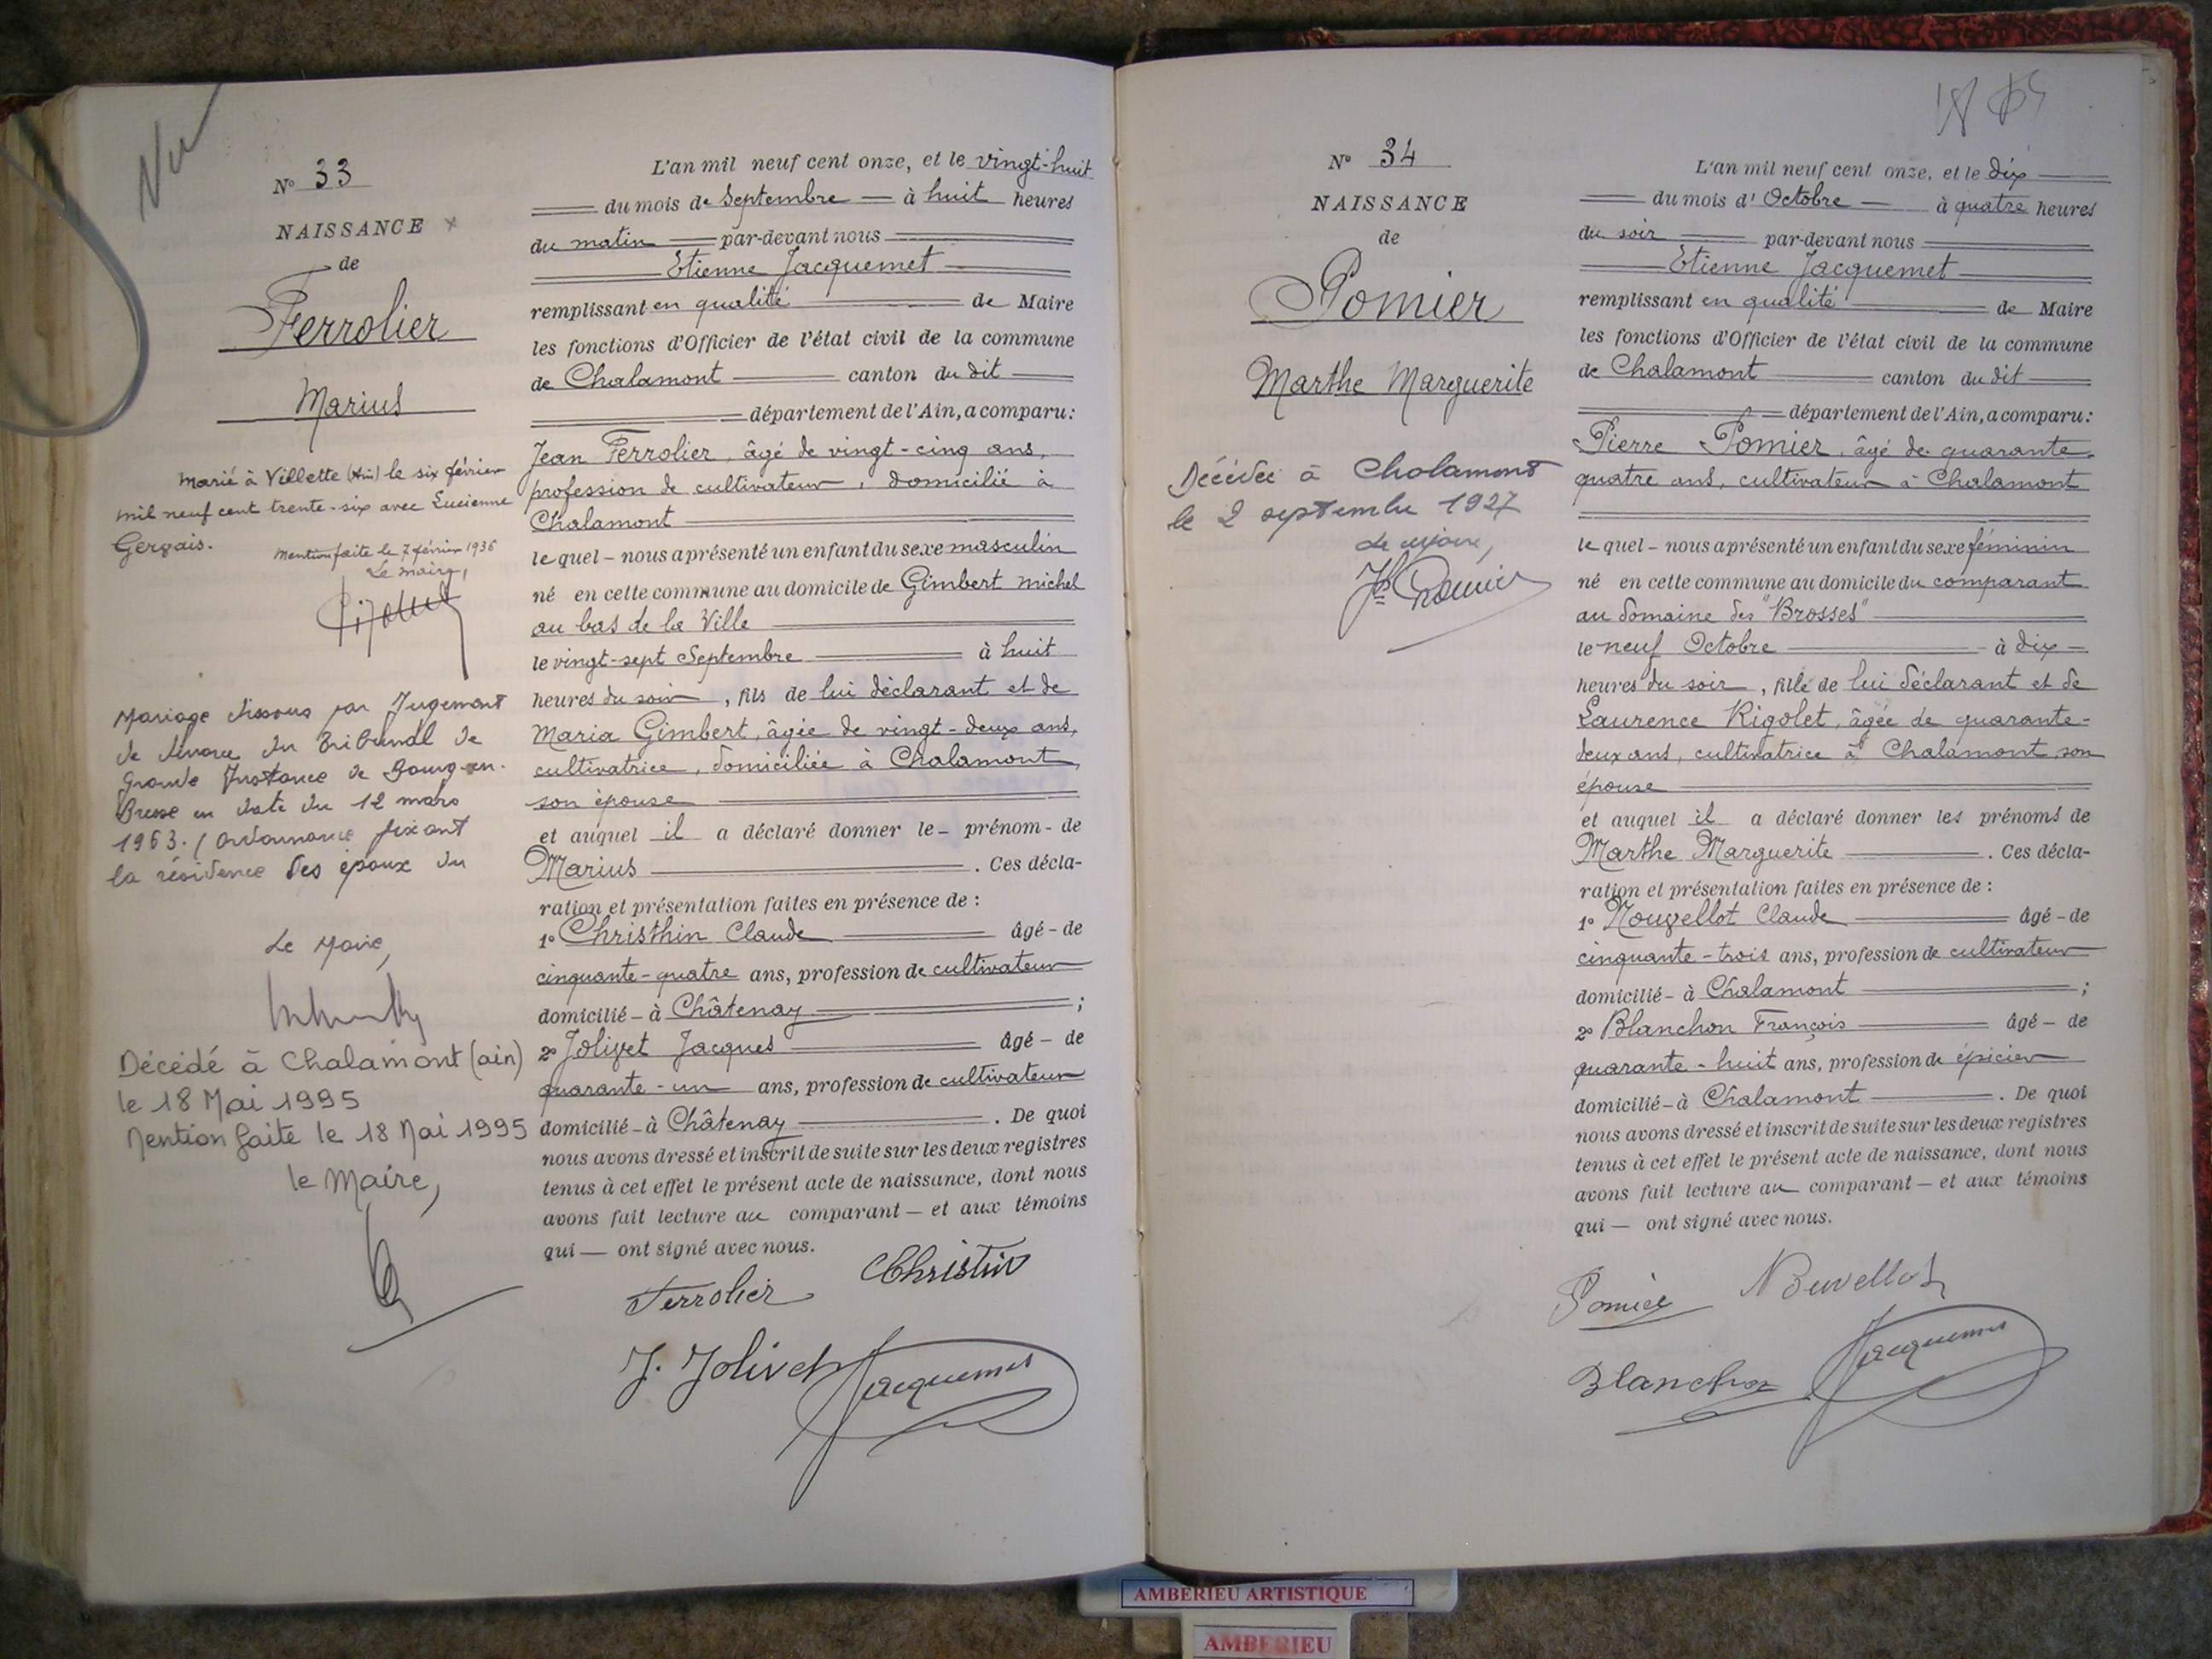 Vu
N° 33
NAISSANCE
de
Ferrolier
Marius
Marié à Villette (Ain) le six février
mil neuf cent trente-six avec Lucienne
Gervais.
Mention faite le 7 février 1936
Le Maire,
Mariage dissous par Jugement
de divorce du Tribunal de
Grande Instance de Bourg-en-
Bresse en date du 12 mars
1963. / Ordonnance fixant
la résidence des époux du
Le Maire,
Décédé à Chalamont (ain)
le 18 Mai 1995
Mention faite le 18 Mai 1995
le Maire,
L'an mil neuf cent onze, et le vingt-huit
du mois de Septembre à huit heures
du matin par-devant nous
Etienne Jacquemet
remplissant en qualité de Maire
les fonctions d'Officier de l'état civil de la commune
de Chalamont canton du dit
département de l'Ain, a comparu:
Jean Ferrolier, âgé de vingt-cinq ans,
profession de cultivateur, domicilié à
Chalamont
le quel - nous a présenté un enfant du sexe masculin
né en cette commune au domicile de Gimbert Michel
au bas de la Ville
le vingt-sept Septembre à huit
heures du soir, fils de lui déclarant et de
Maria Gimbert, âgée de vingt-deux ans,
cultivatrice, domiciliée à Chalamont,
son épouse
et auquel il a déclaré donner le - prénom - de
Marius . Ces décla-
ration et présentation faites en présence de :
1° Christhin Claude âgé - de
cinquante-quatre ans, profession de cultivateur
domicilié - à Châtenay ;
2° Jolivet Jacques âgé - de
quarante-un ans, profession de cultivateur
domicilié - à Châtenay . De quoi
nous avons dressé et inscrit de suite sur les deux registres
tenus à cet effet le présent acte de naissance, dont nous
avons fait lecture au comparant - et aux témoins
qui - ont signé avec nous.
Ferrolier Christin
J. Jolivet Jacquemet
N° 34
NAISSANCE
de
Pomier
Marthe Marguerite
Décédée à Chalamont
le 2 septembre 1927
Le Maire,
L'an mil neuf cent onze, et le dix
du mois d'Octobre à quatre heures
du soir par-devant nous
Etienne Jacquemet
remplissant en qualité de Maire
les fonctions d'Officier de l'état civil de la commune
de Chalamont canton du dit
département de l'Ain, a comparu:
Pierre Pomier, âgé de quarante-
quatre ans, cultivateur à Chalamont
le quel - nous a présenté un enfant du sexe féminin
né en cette commune au domicile du comparant
au domaine des "Brosses"
le neuf Octobre à dix
heures du soir, fille de lui déclarant et de
Laurence Rigolet, âgée de quarante-
deux ans, cultivatrice à Chalamont, son
épouse
et auquel il a déclaré donner les prénoms de
Marthe Marguerite . Ces décla-
ration et présentation faites en présence de :
1° Nouvellot Claude âgé - de
cinquante-trois ans, profession de cultivateur
domicilié - à Chalamont ;
2° Blanchon François âgé - de
quarante-huit ans, profession de épicier
domicilié - à Chalamont . De quoi
nous avons dressé et inscrit de suite sur les deux registres
tenus à cet effet le présent acte de naissance, dont nous
avons fait lecture au comparant - et aux témoins
qui - ont signé avec nous.
Pomier Nouvellot
Blanchon Jacquemet
AMBERIEU ARTISTIQUE
AMBERIEU